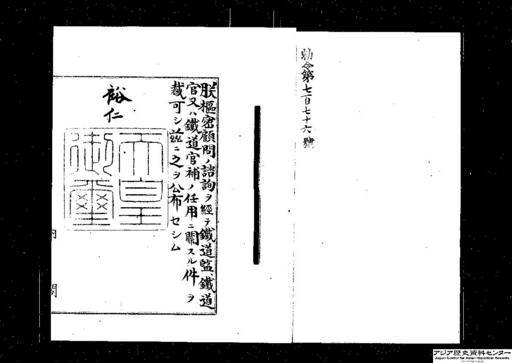 勅令第七百七十六號
朕樞密顧問ノ諮詢ヲ經テ鐵道監、鐵道
官又ハ鐵道官補ノ任用ニ關スル件ヲ
裁可シ茲ニ之ヲ公布セシム
裕仁
天皇
御璽
内閣
アジア歴史資料センター
Japan Center for Asian Historical Records